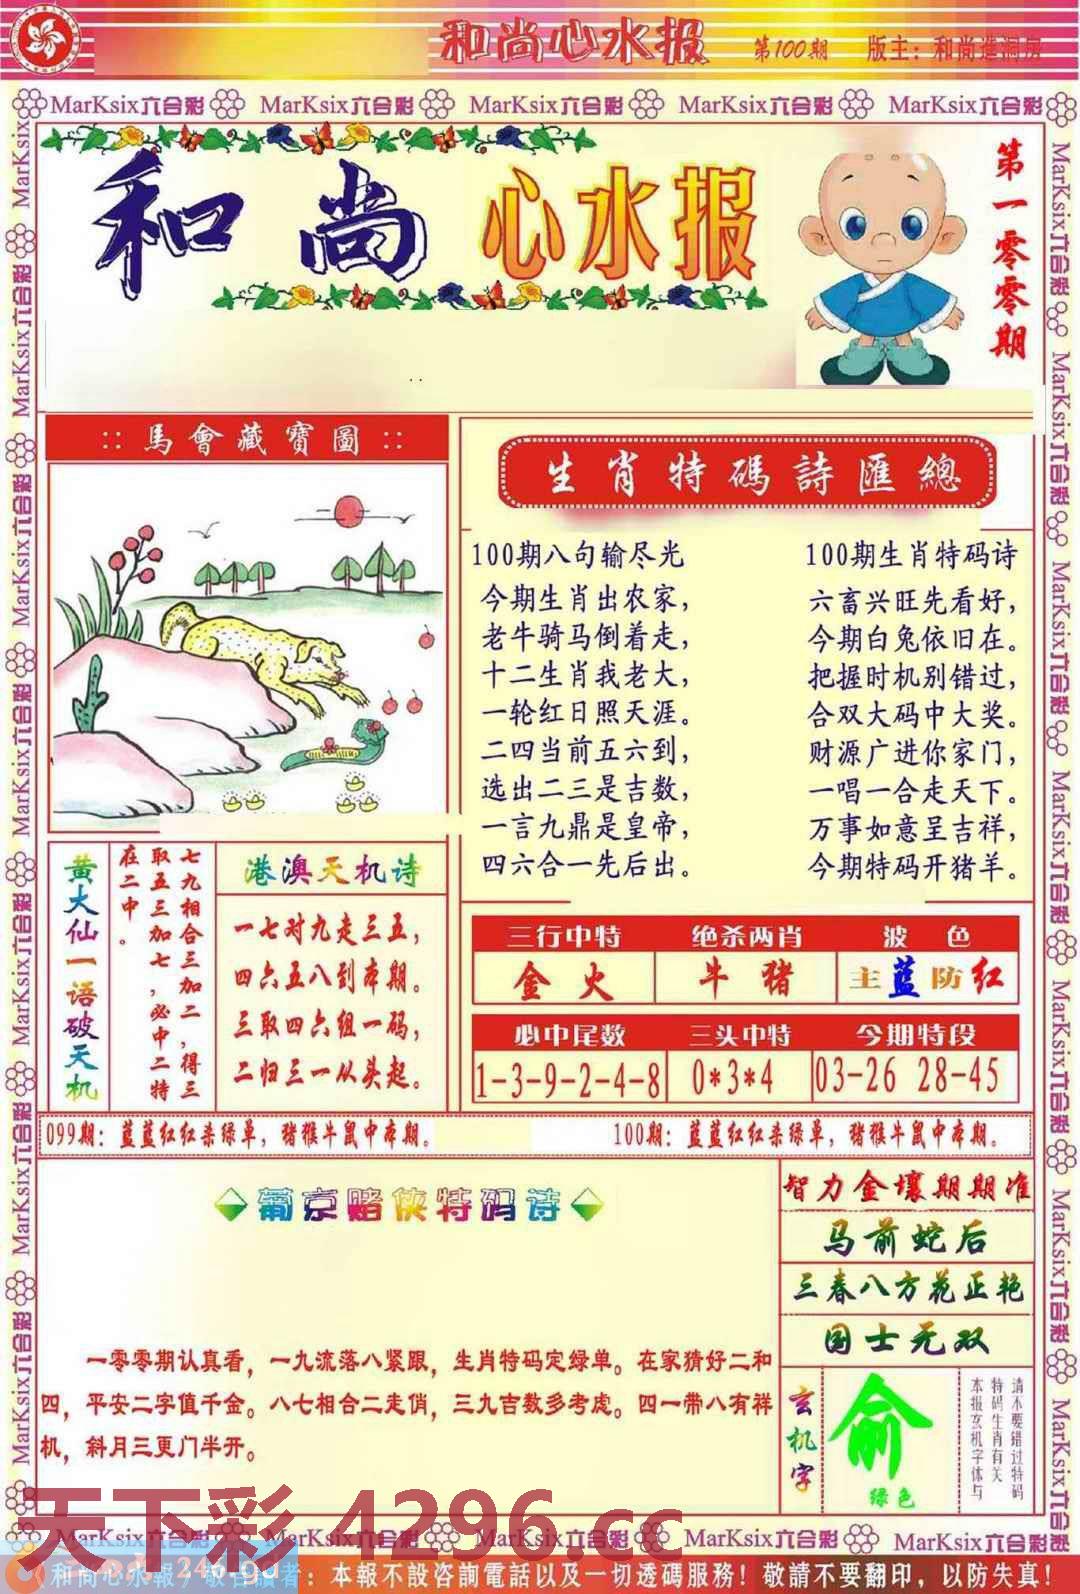 和尚心水报 第100期 版主：和尚進洞房
MarKsix六合彩 MarKsix六合彩 MarKsix六合彩 MarKsix六合彩 MarKsix六合彩
和尚心水报
第一零零期
:: 馬會藏寶圖 ::
生肖特碼詩匯總
100期八句输尽光
今期生肖出农家，
老牛骑马倒着走，
十二生肖我老大，
一轮红日照天涯。
二四当前五六到，
选出二三是吉数，
一言九鼎是皇帝，
四六合一先后出。
100期生肖特码诗
六畜兴旺先看好，
今期白兔依旧在。
把握时机别错过，
合双大码中大奖。
财源广进你家门，
一唱一合走天下。
万事如意呈吉祥，
今期特码开猪羊。
黄大仙一语破天机
七九相合三加二，得三
取五三加七，必中二特
在二中。
港澳天机诗
一七对九走三五，
四六五八到本期。
三取四六组一码，
二归三一从头起。
三行中特 绝杀两肖 波色
金火 牛猪 主蓝防红
必中尾数 三头中特 今期特段
1-3-9-2-4-8 0*3*4 03-26 28-45
099期：蓝蓝红红杀绿单，猪猴牛鼠中本期。 100期：蓝蓝红红杀绿单，猪猴牛鼠中本期。
葡京赌侠特码诗
一零零期认真看，一九流落八紧跟，生肖特码定绿单。在家猜好二和
四，平安二字值千金。八七相合二走俏，三九吉数多考虑。四一带八有祥
机，斜月三更门半开。
智力金壤期期准
马前蛇后
三春八方花正艳
国士无双
玄机字
俞
绿色
请不要错过特码
特码生肖有关
本报玄机字体与
天下彩 4296.cc
MarKsix六合彩 MarKsix六合彩 MarKsix六合彩 MarKsix六合彩 MarKsix六合彩
和尚心水報 敬告讀者：本報不設咨詢電話以及一切透碼服務！敬請不要翻印，以防失真！